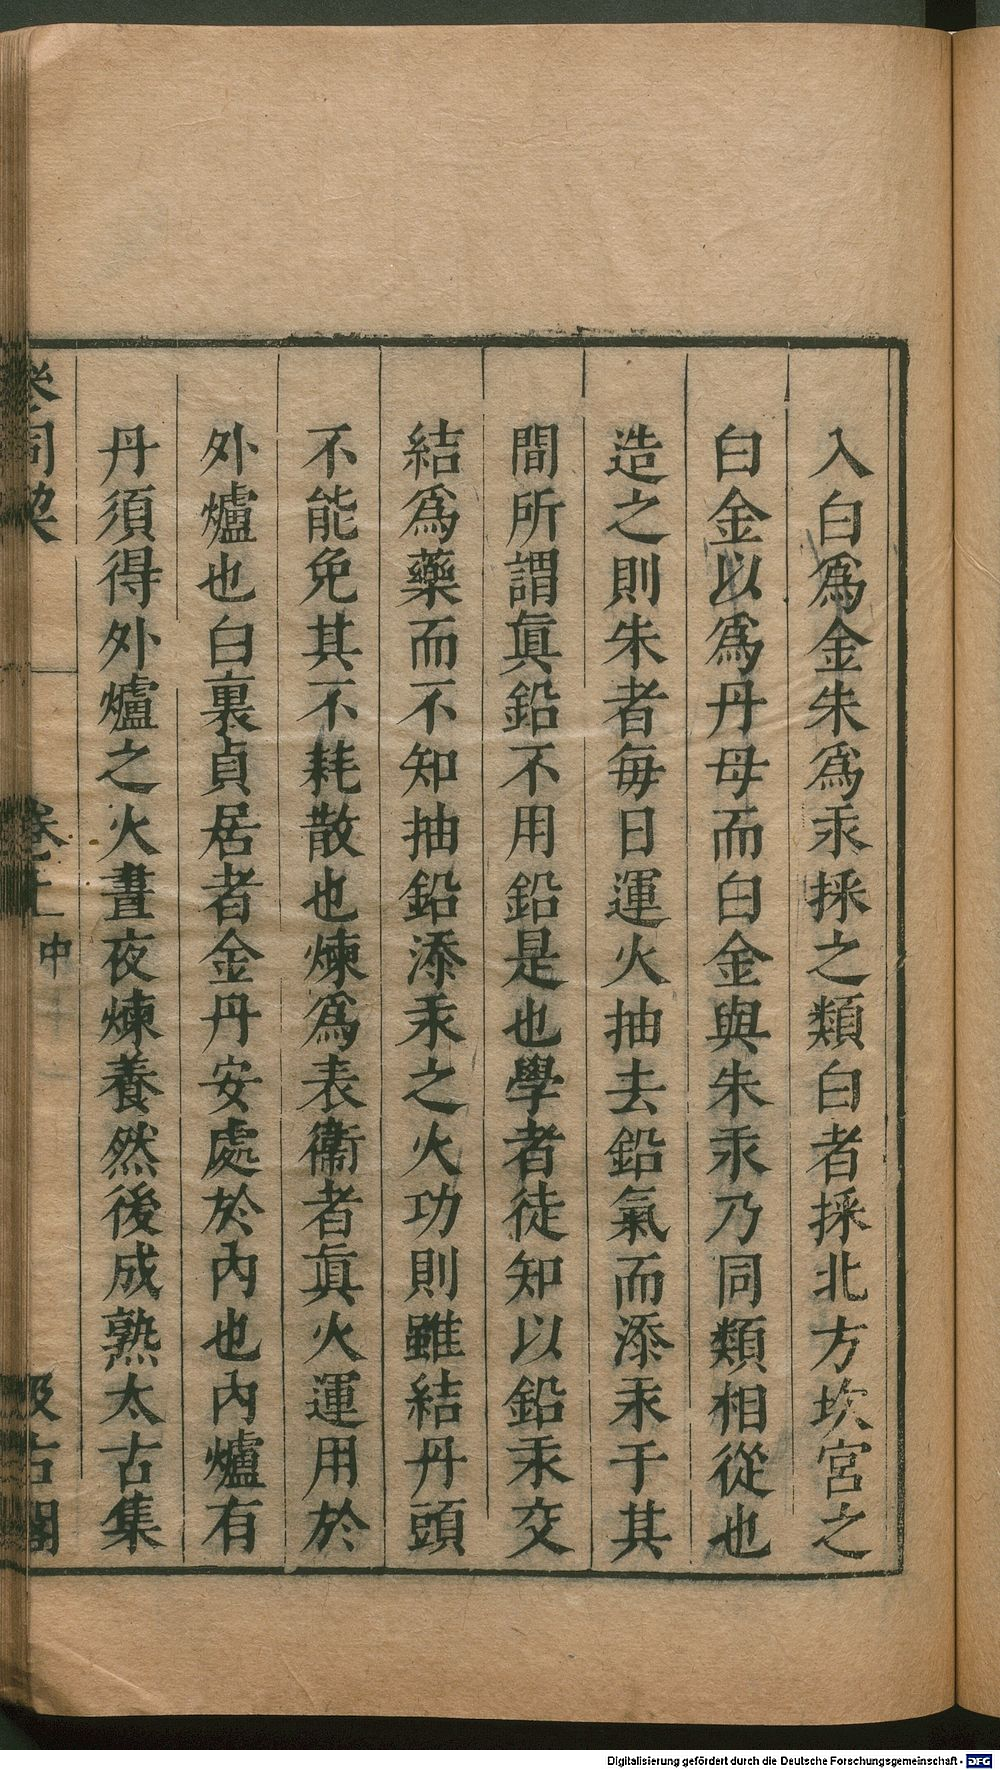 入白爲金朱爲汞採之類白者採北方坎宮之
白金以爲丹母而白金與朱汞乃同類相從也
造之則朱者每日運火抽去鉛氣而添汞于其
間所謂眞鉛不用鉛是也學者徒知以鉛汞交
結爲藥而不知抽鉛添汞之火功則雖結丹頭
不能免其不耗散也煉爲表衞者眞火運用於
外爐也白裏貞居者金丹安處於內也內爐有
丹須得外爐之火晝夜煉養然後成熟太古集
參同契 卷上 中 汲古閣
Digitalisierung gefördert durch die Deutsche Forschungsgemeinschaft - DFG